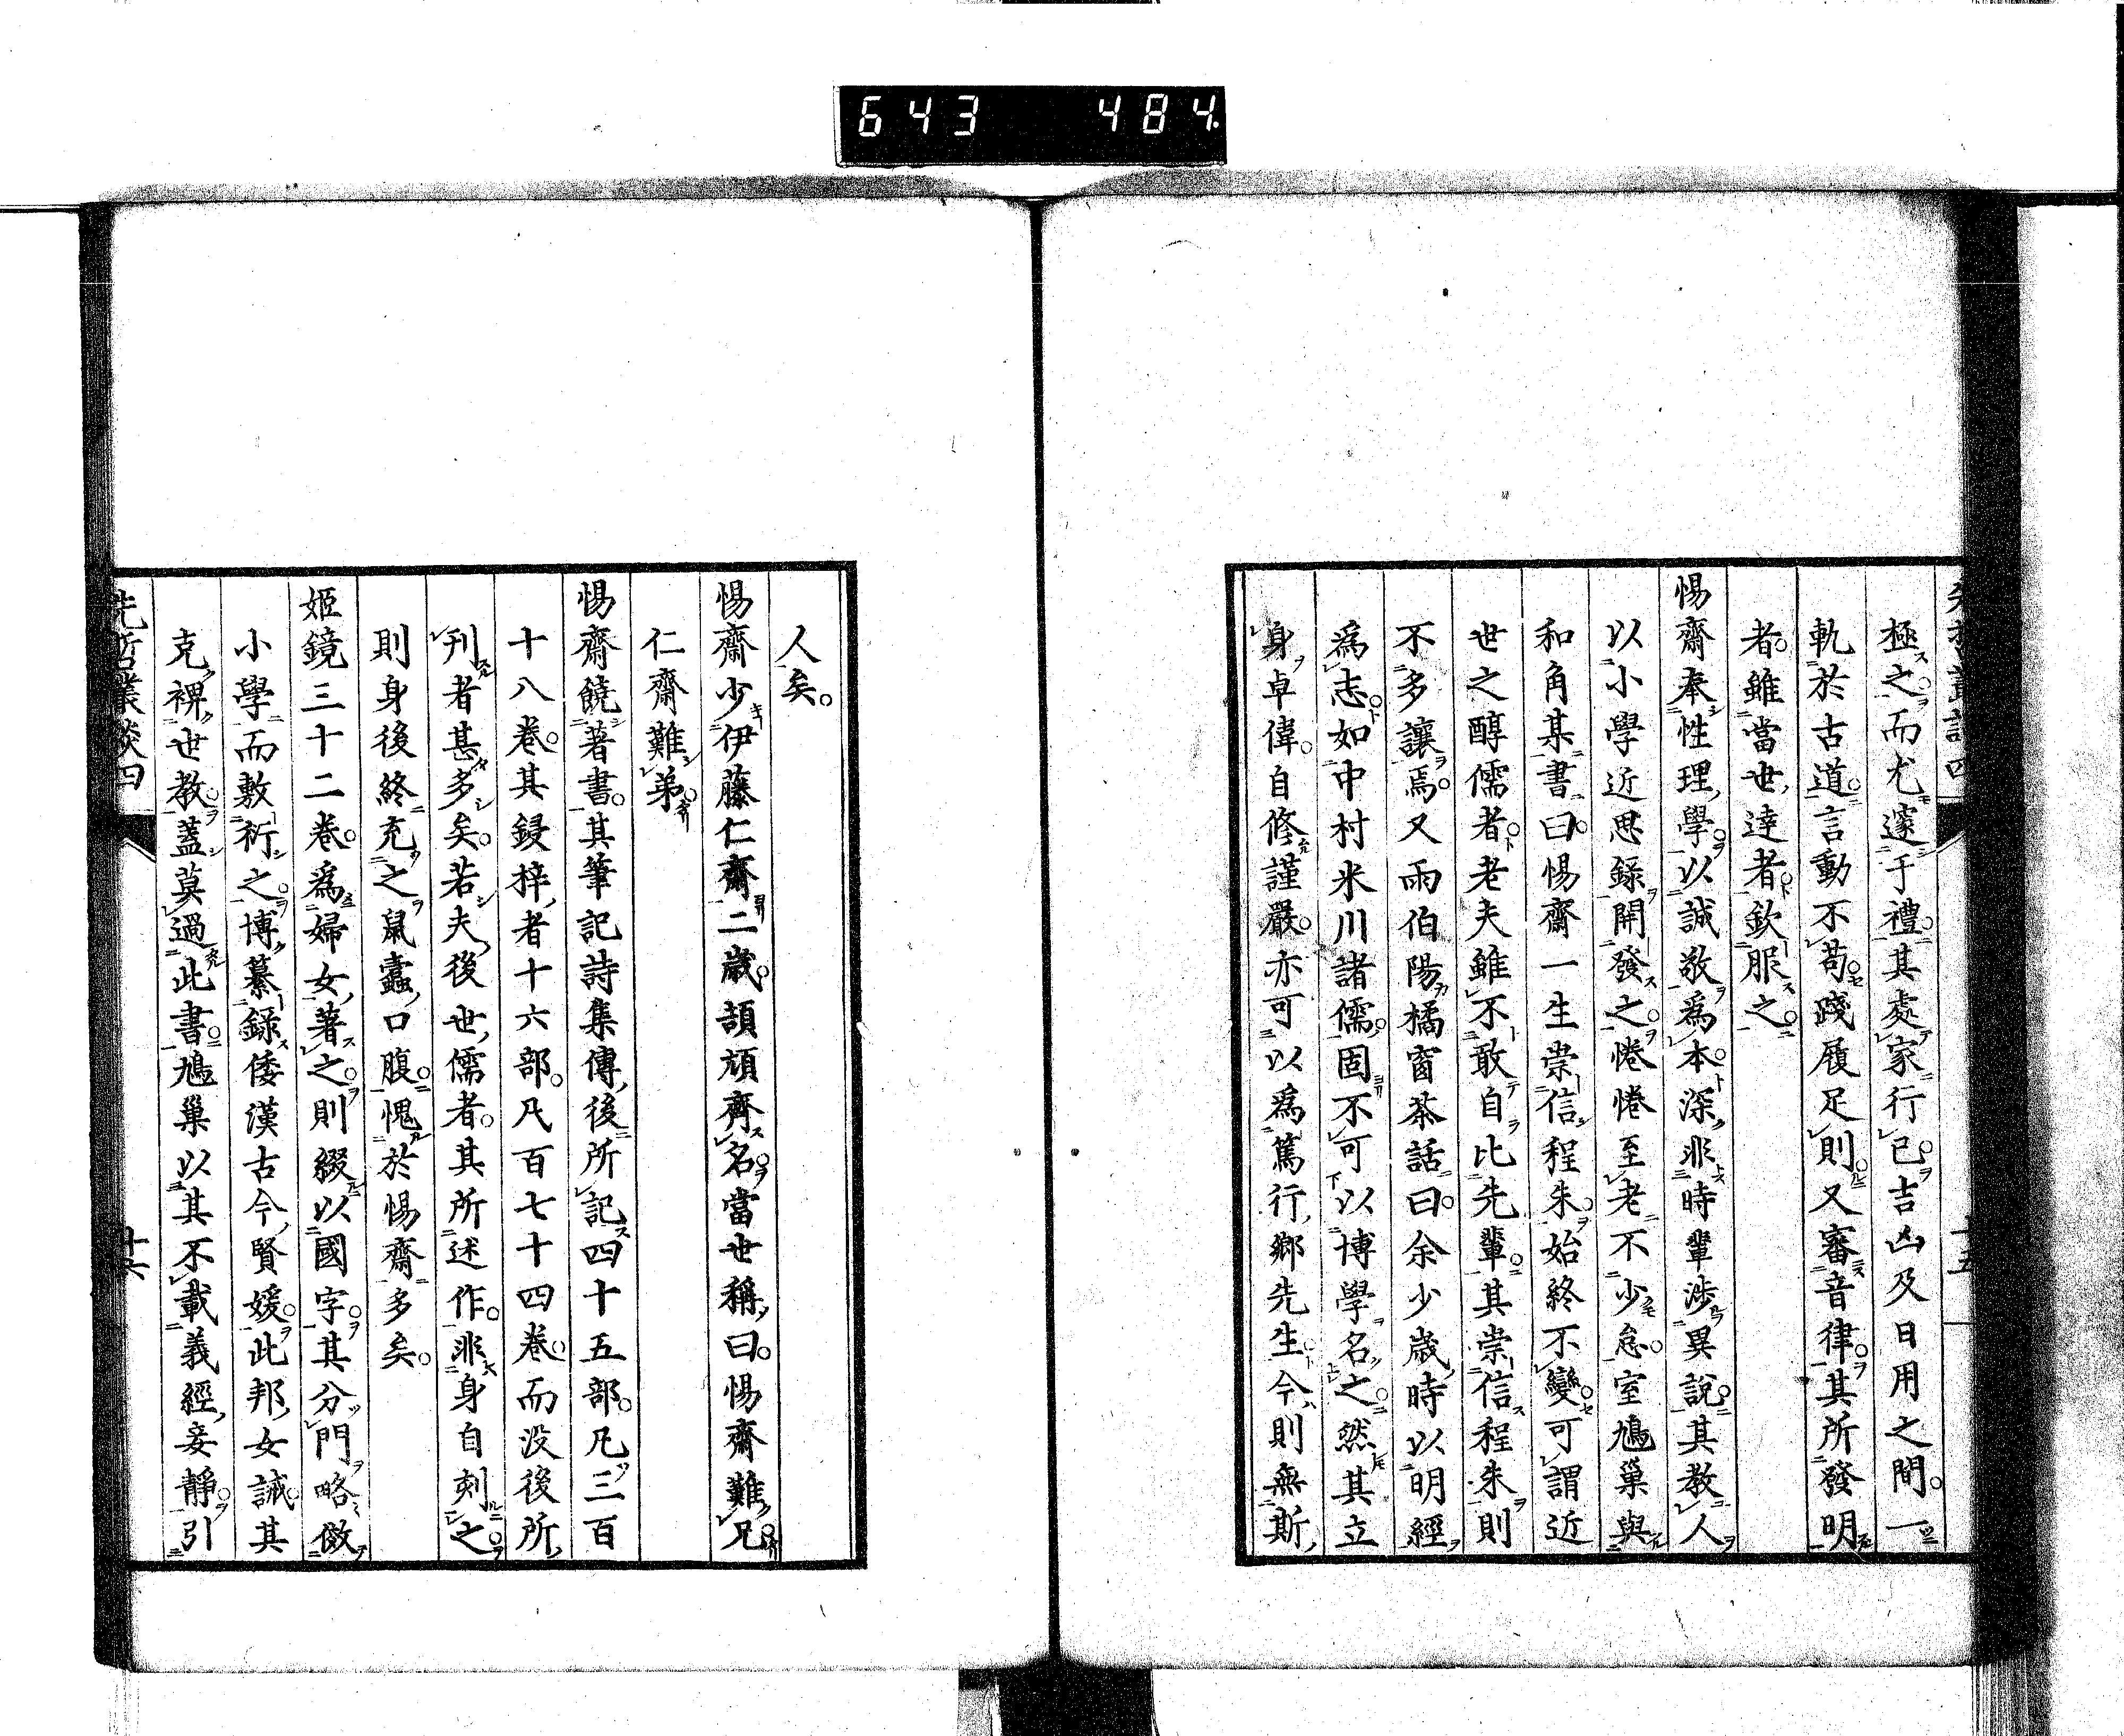 643 484
先哲叢談四
十五
極之而尤邃于禮其處家行已吉凶及日用之間一
軌於古道言動不苟踐履足則又審音律其所發明
者雖當世達者欽服之
惕齋奉性理學以誠敬爲本深非時輩渉異說其教人
以小學近思錄開發之惓惓至老不少怠室鳩巢與
和角某書曰惕齋一生崇信程朱始終不變可謂近
世之醇儒者老夫雖不敢自比先輩其崇信程朱則
不多讓焉又雨伯陽橘窗茶話曰余少歲時以明經
爲志如中村米川諸儒固不可以博學名之然其立
身卓偉自修謹嚴亦可以爲篤行鄉先生今則無斯
人矣
惕齋少伊藤仁齋二歲頡頏齊名當世稱曰惕齋難兄
仁齋難弟
惕齋饒著書其筆記詩集傳後所記四十五部凡三百
十八卷其鋟梓者十六部凡百七十四卷而沒後所
刊者甚多矣若夫後世儒者其所述作非身自刻之
則身後終充之鼠蠹口腹愧於惕齋多矣
姬鏡三十二卷爲婦女著之則綴以國字其分門略倣
小學而敷衍之博纂錄倭漢古今賢媛此邦女誡其
克裨世教蓋莫過此書鳩巢以其不載義經妾靜引
先哲叢談四
十六